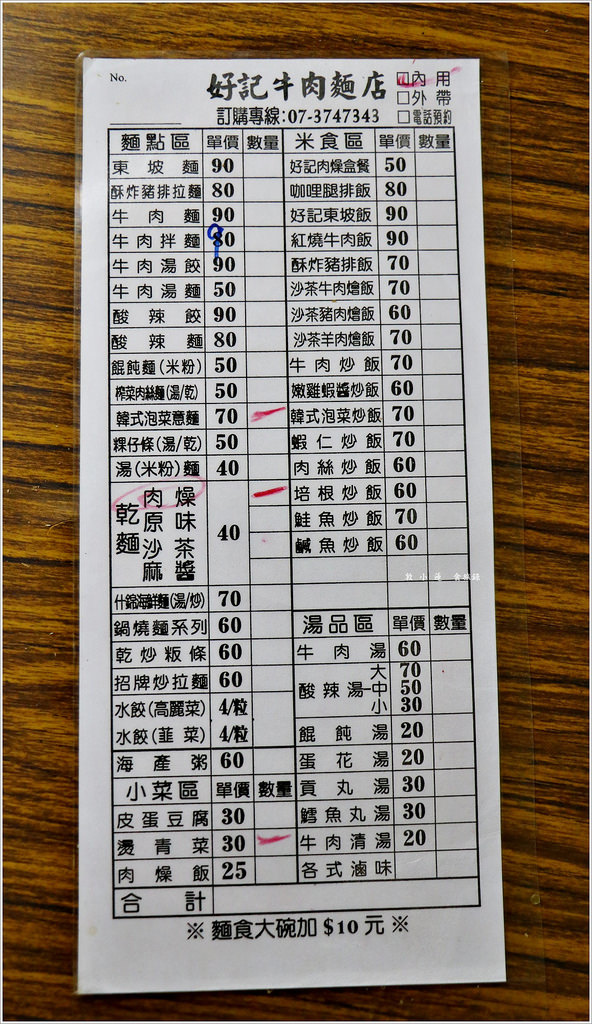 No.
好記牛肉麵店
內用
外帶
電話預約
訂購專線:07-3747343
麵點區 單價 數量
東坡麵 90
酥炸豬排拉麵 80
牛肉麵 90
牛肉拌麵 90
牛肉湯餃 90
牛肉湯麵 50
酸辣餃 90
酸辣麵 80
餛飩麵(米粉) 50
榨菜肉絲麵(湯/乾) 50
韓式泡菜意麵 70
粿仔條(湯/乾) 50
湯(米粉)麵 40
乾麵 40
肉燥
原味
沙茶
麻醬
什錦海鮮麵(湯/炒) 70
鍋燒麵系列 60
乾炒粄條 60
招牌炒拉麵 60
水餃(高麗菜) 4/粒
水餃(韭菜) 4/粒
海產粥 60
小菜區 單價 數量
皮蛋豆腐 30
燙青菜 30
肉燥飯 25
合計
米食區 單價 數量
好記肉燥盒餐 50
咖哩腿排飯 80
好記東坡飯 90
紅燒牛肉飯 90
酥炸豬排飯 70
沙茶牛肉燴飯 70
沙茶豬肉燴飯 60
沙茶羊肉燴飯 70
牛肉炒飯 70
嫩雞蝦醬炒飯 60
韓式泡菜炒飯 70
蝦仁炒飯 70
肉絲炒飯 60
培根炒飯 60
鮭魚炒飯 70
鹹魚炒飯 60
湯品區 單價 數量
牛肉湯 60
酸辣湯 大 70
中 50
小 30
餛飩湯 20
蛋花湯 20
貢丸湯 30
鱈魚丸湯 30
牛肉清湯 20
各式滷味
※ 麵食大碗加 $10 元 ※